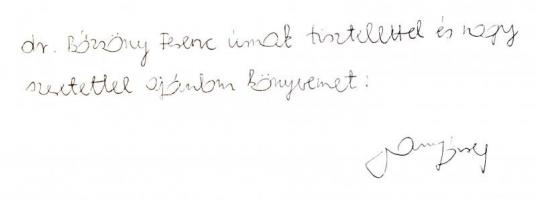 dr. Bőzsöny Ferenc úrnak tisztelettel és nagy
szeretettel ajánlom könyvemet: